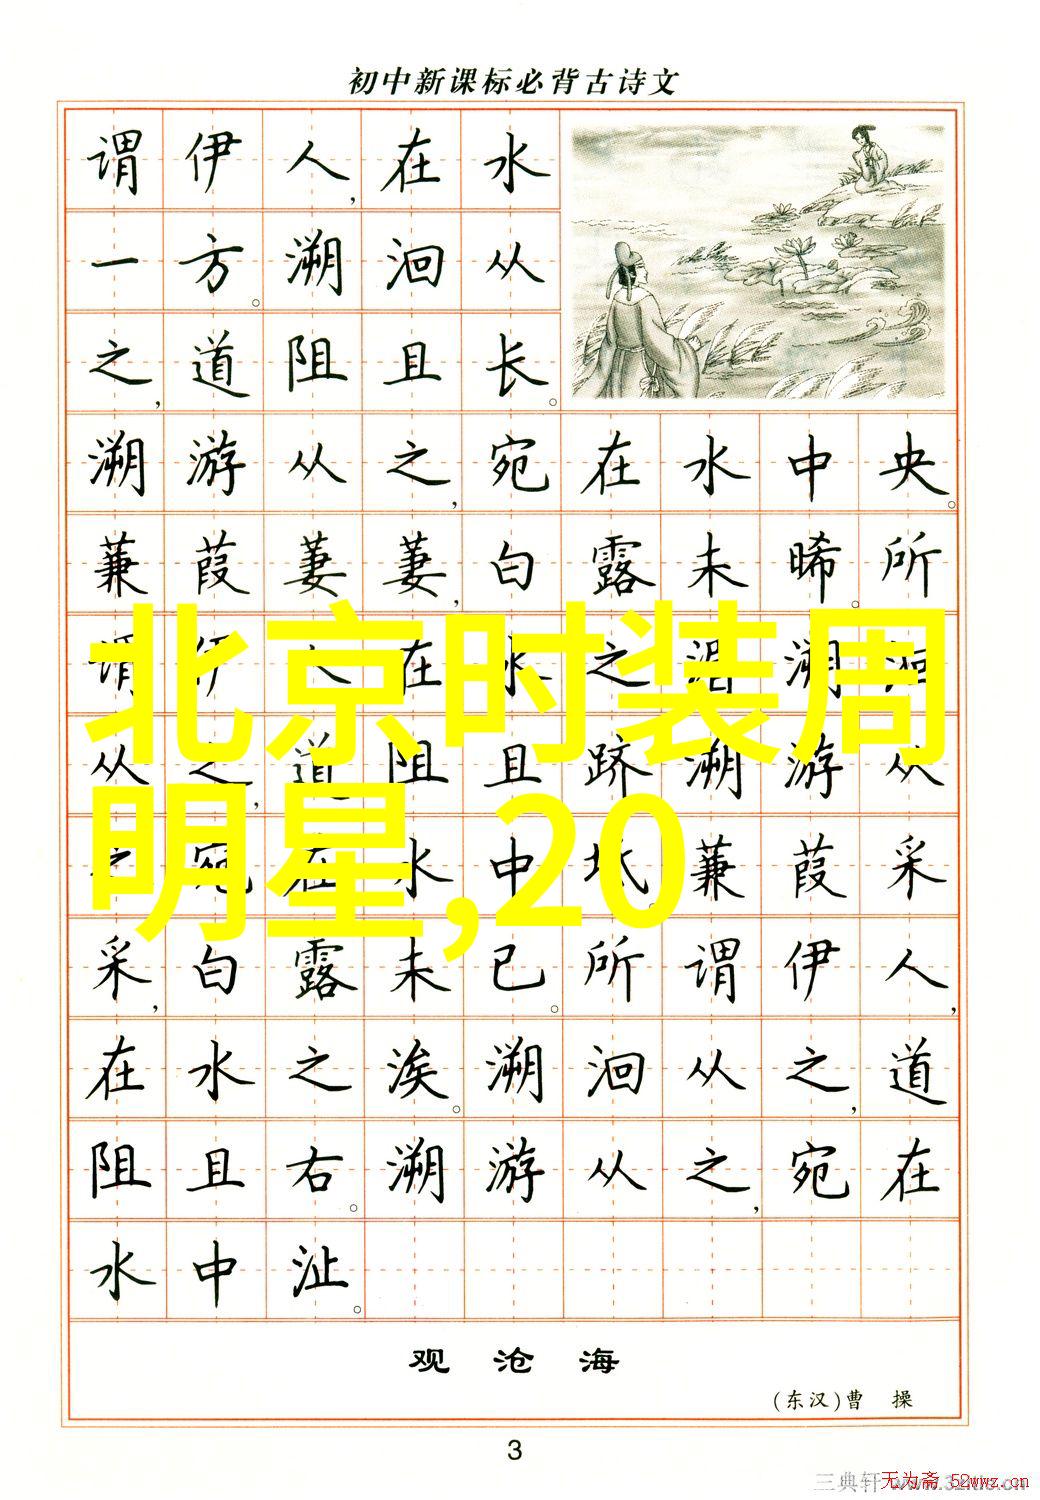 初中新课标必背古诗文
谓伊人,在水
一方。溯洄从
之,道阻且长。
溯游从之,宛在水中央。
蒹葭萋萋,白露未晞。所
谓伊人在水之湄溯洄
从之,道阻且跻溯游从
之宛在水中坻。蒹葭采
采,白露未已。所谓伊人,
在水之涘。溯洄从之,道
阻且右。溯游从之,宛在
水中沚。
北京时装周
明星,20
观沧海
(东汉)曹 操
3
三典轩
无为斋 52wwz.cn